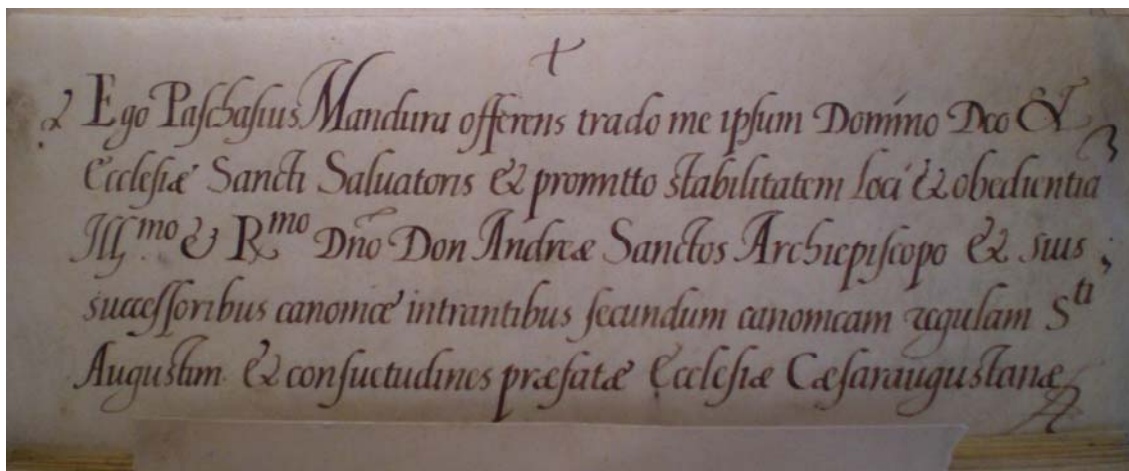 +
Ego Paschasius Mandura offerens trado me ipsum Domino Deo &
Ecclesiæ Sancti Saluatoris & promitto stabilitatem loci & obedientia
Ill.mo & Rmo Dño Don Andreæ Sanctos Archiepiscopo & suis
successoribus canonicæ intrantibus secundum canonicam regulam Sti
Augustini & consuetudines præfatæ Ecclesiæ Cæsaraugustanæ